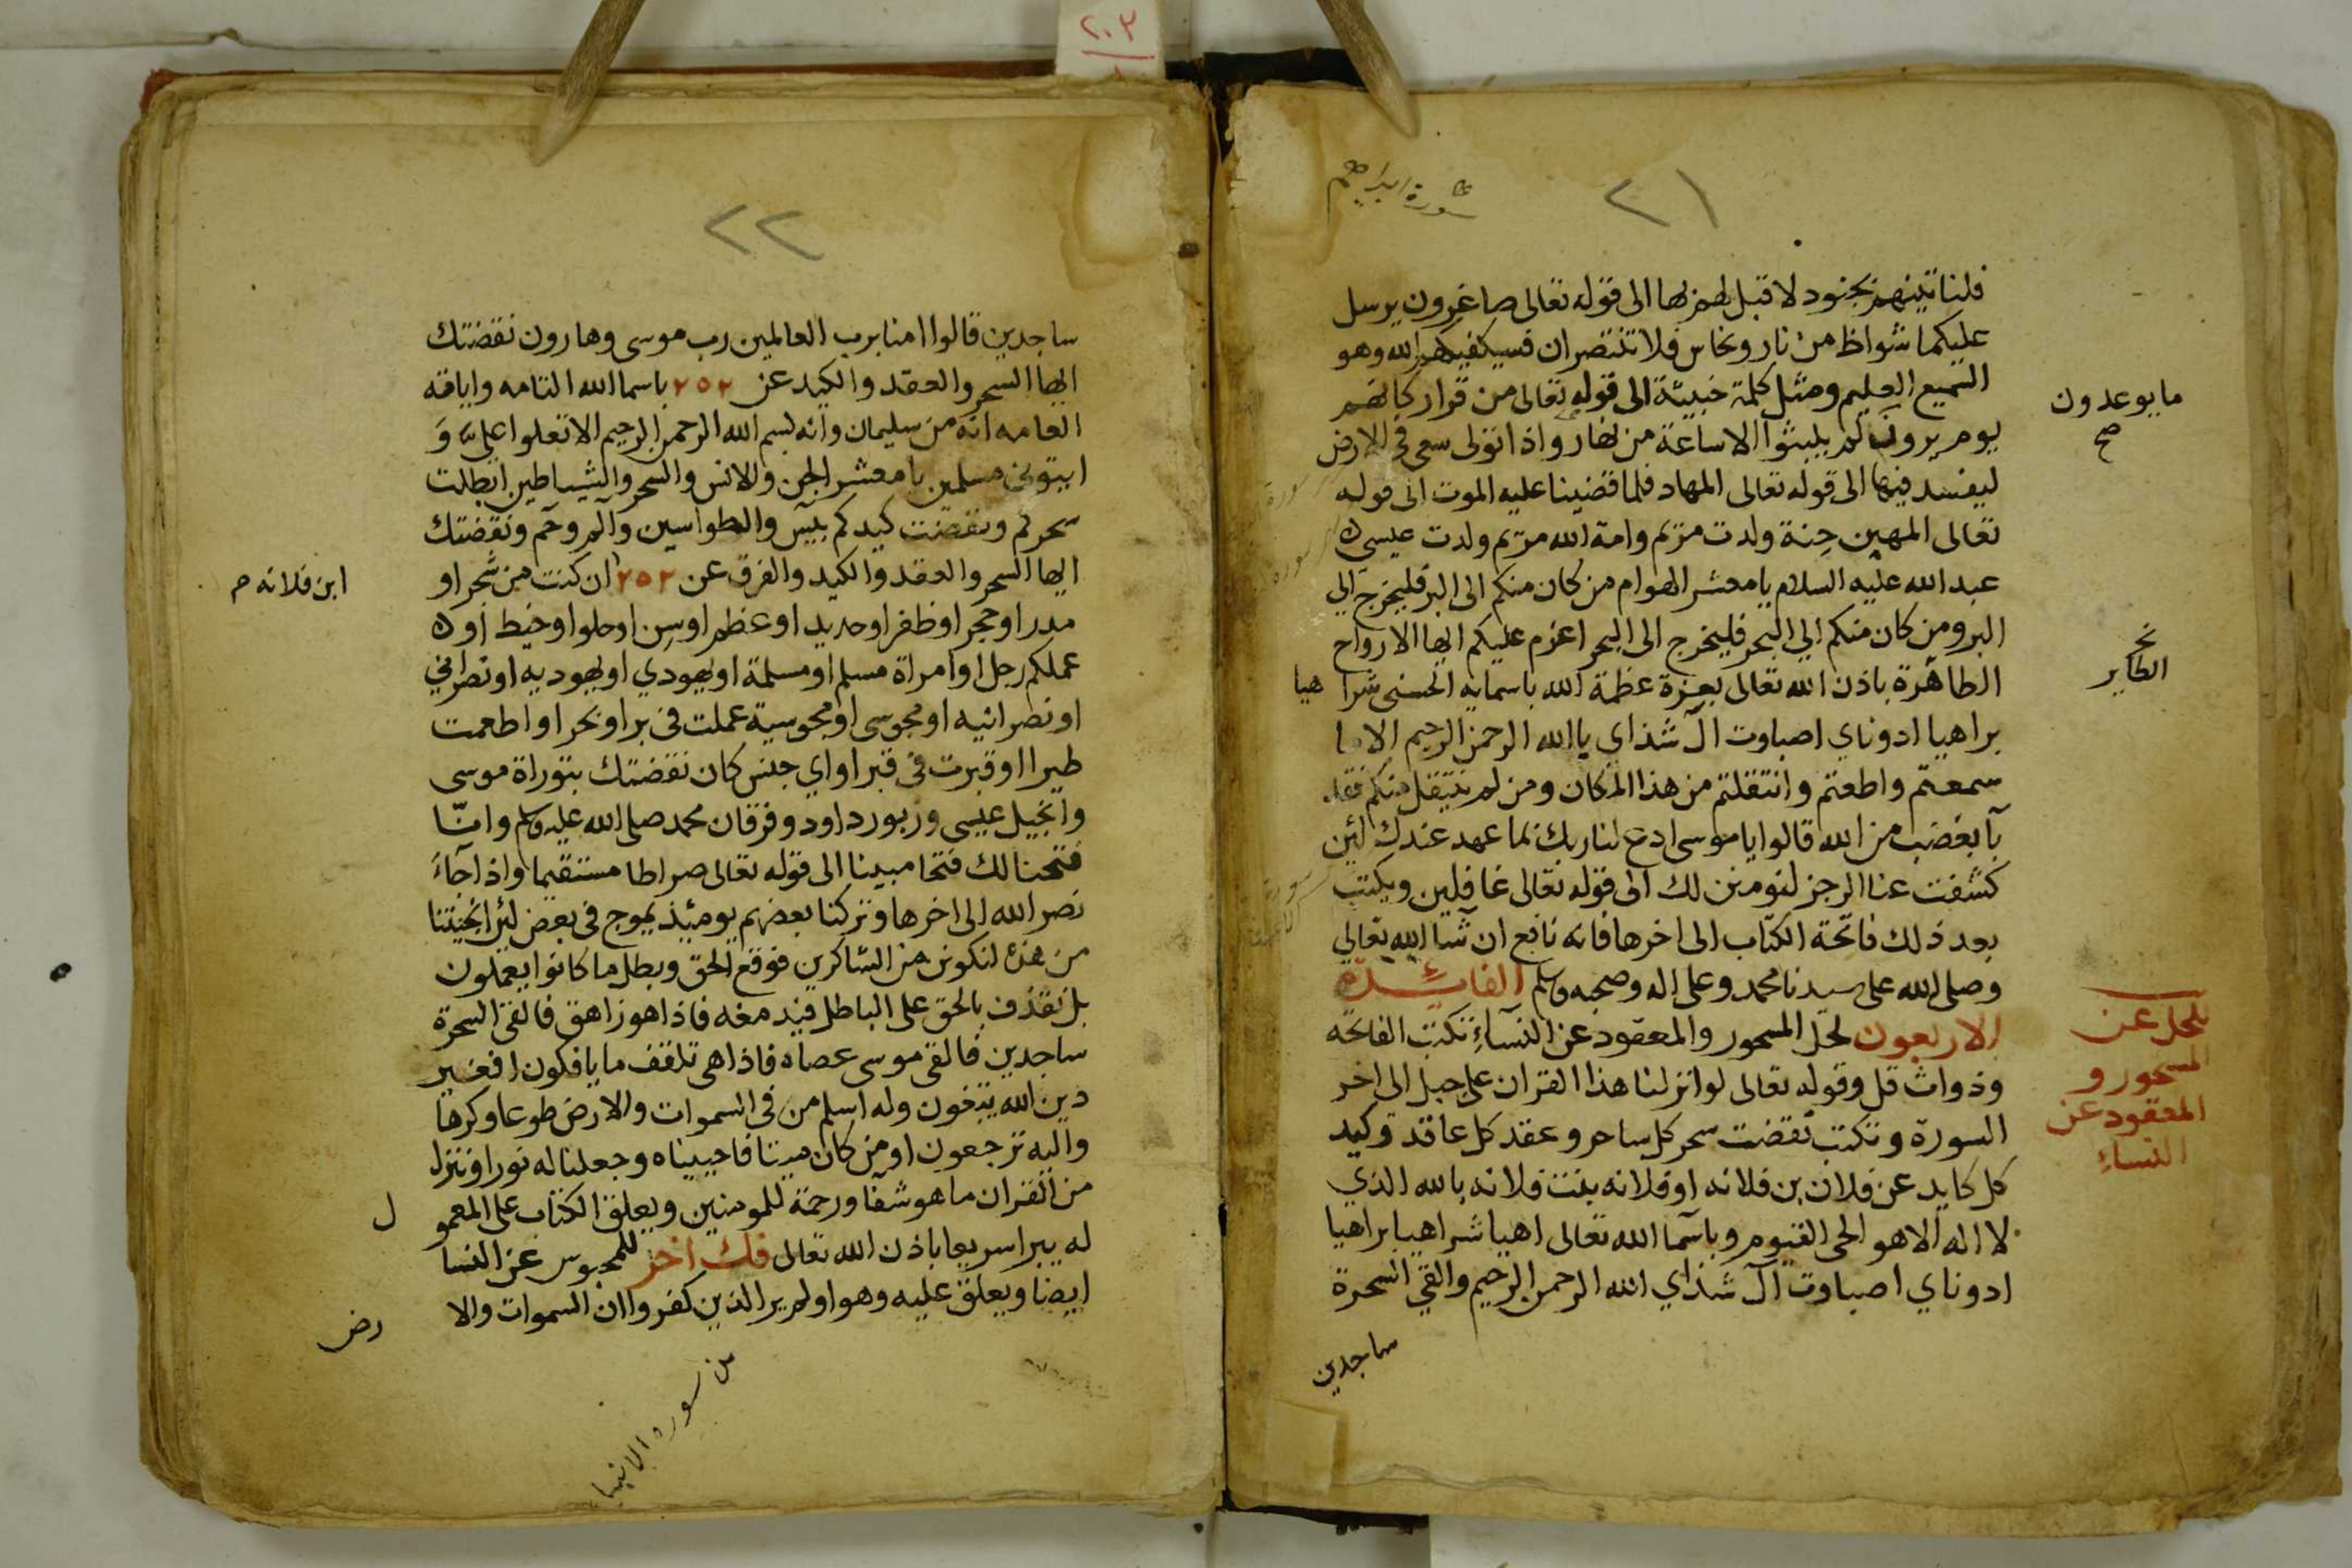 ٢٠٣
٢١
سورة ابراهيم
فلناتينهم بجنود لا قبل لهم بها الى قوله تعالى صاغرون يرسل
عليكما شواظ من نار ونحاس فلا تنتصران فسيكفيكهم الله وهو
السميع العليم ومثل كلمة خبيثة الى قوله تعالى من قرار كانهم
يوم يرون لم يلبثوا الا ساعة من نهار واذا تولى سعى في الارض
ما يوعدون
صح
ليفسد فيها الى قوله تعالى المهاد فلما قضينا عليه الموت الى قوله
تعالى المهين حنة ولدت مريم وامة الله مريم ولدت عيسى
عبد الله عليه السلام يا معشر الهوام من كان منكم الى البر فليخرج الي
البر ومن كان منكم الي البحر فليخرج الى البحر اعزم عليكم ايها الارواح
الطاهرة باذن الله تعالى بعزة عظمة الله باسمايه الحسنى شرا هيا
نخ
الطاير
براهيا ادوناي اصباوت ال شذاي يا الله الرحمن الرحيم الا ما
سمعتم واطعتم وانتقلتم من هذا المكان ومن لم ينتقل منكم فقد
بآ بغضب من الله قالوا يا موسى ادع لنا ربك بما عهد عندك لئن
كشفت عنا الرجز لنومنن لك الى قوله تعالى غافلين ويكتب
بعد ذلك فاتحة الكتاب الى اخرها فانه نافع ان شا الله تعالي
وصلى الله على سيدنا محمد وعلى اله وصحبه وسلم الفائدة
الاربعون لحل المسحور والمعقود عن النساء تكتب الفاتحة
للحل عن
المسحور و
المعقود عن
النساء
وذوات قل وقوله تعالى لو انزلنا هذا القران على جبل الى اخر
السورة وتكتب نقضت سحر كل ساحر وعقد كل عاقد وكيد
كل كايد عن فلان بن فلانه او فلانه بنت فلانه بالله الذي
لا اله الا هو الحي القيوم وباسما الله تعالى اهيا شراهيا براهيا
ادوناي اصباوت ال شذاي الله الرحمن الرحيم والقي السحرة
ساجدين
٢٢
ساجدين قالوا امنا برب العالمين رب موسى وهارون نقضتك
ايها السحر والعقد والكيد عن ٢٥٢ باسما الله التامه واياته
العامه انه من سليمان وانه بسم الله الرحمن الرحيم الا تعلوا علي وَ
ايتوني مسلمين يا معشر الجن والانس والسحر والشياطين ابطلت
سحركم ونقضت كيدكم بيس والطواسين والم وحم ونقضتك
ايها السحر والعقد والكيد والفرق عن ٢٥٢ ان كنت من شجر او
ابن فلانه م
مدر او حجر او ظفر او حديد او عظم او سن او حلو او خيط او
عملكم رجل او امراة مسلم او مسلمة او يهودي او يهوديه او نصراني
او نصرانيه او مجوسي او مجوسية عملت في بر او بحر او اطعمت
طيرا او قبرت في قبر او اي جنس كان نقضتك بتوراة موسى
وانجيل عيسى وزبور داود وفرقان محمد صلى الله عليه وسلم وانّا
فتحنا لك فتحا مبينا الى قوله تعالى صراطا مستقيما واذا جاء
نصر الله الى اخرها وتركنا بعضهم يومئذ يموج في بعض لئن انجيتنا
من هذه لنكونن من الشاكرين فوقع الحق وبطل ما كانوا يعملون
بل نقذف بالحق على الباطل فيدمغه فاذا هو زاهق فالقى السحرة
ساجدين فالقى موسى عصاه فاذا هي تلقف ما يافكون افغير
دين الله يبغون وله اسلم من في السموات والارض طوعا وكرها
واليه ترجعون او من كان ميتا فاحييناه وجعلنا له نورا وننزل
من القران ما هو شفا ورحمة للمومنين ويعلق الكتاب على المعمو ل
له يبرا سريعا باذن الله تعالى فك اخر للمحبوس عن النسا
ايضا ويعلق عليه وهو اولم ير الذين كفروا ان السموات والا رض
من سوره الانبيا